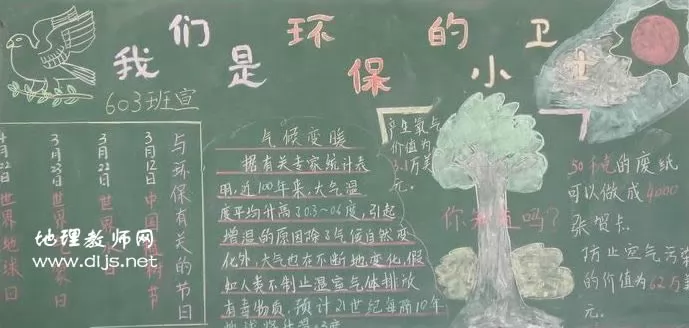 我们是环保的小卫士
603班宣
与环保有关的节日
3月12日 中国植树节
3月22日 世界
3月23日 世界
4月22日 世界地球日
气候变暖
据有关专家统计表
明,近100年来,大气温
度平均升高了0.3~0.6度,引起
增温的原因除了气候自然变
化外,大气也在不断地变化,假
如人类不制止温室气体排放
有毒物质,预计21世纪每隔10年
产生氧气
价值为
3.1万美
元。
你知道吗?
50千克的废纸
可以做成4000
张贺卡。
防止空气污染
的价值为6.2万美
元。
地理教师网
www.dljs.net